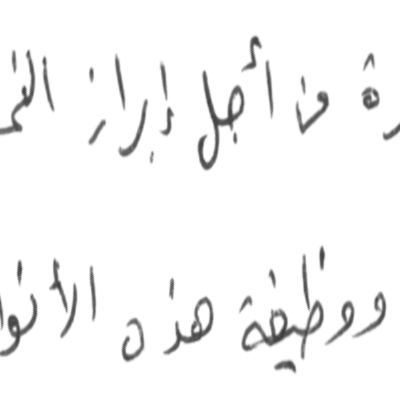 رة من أجل إبراز الق
ووظيفة هذه الأنوا